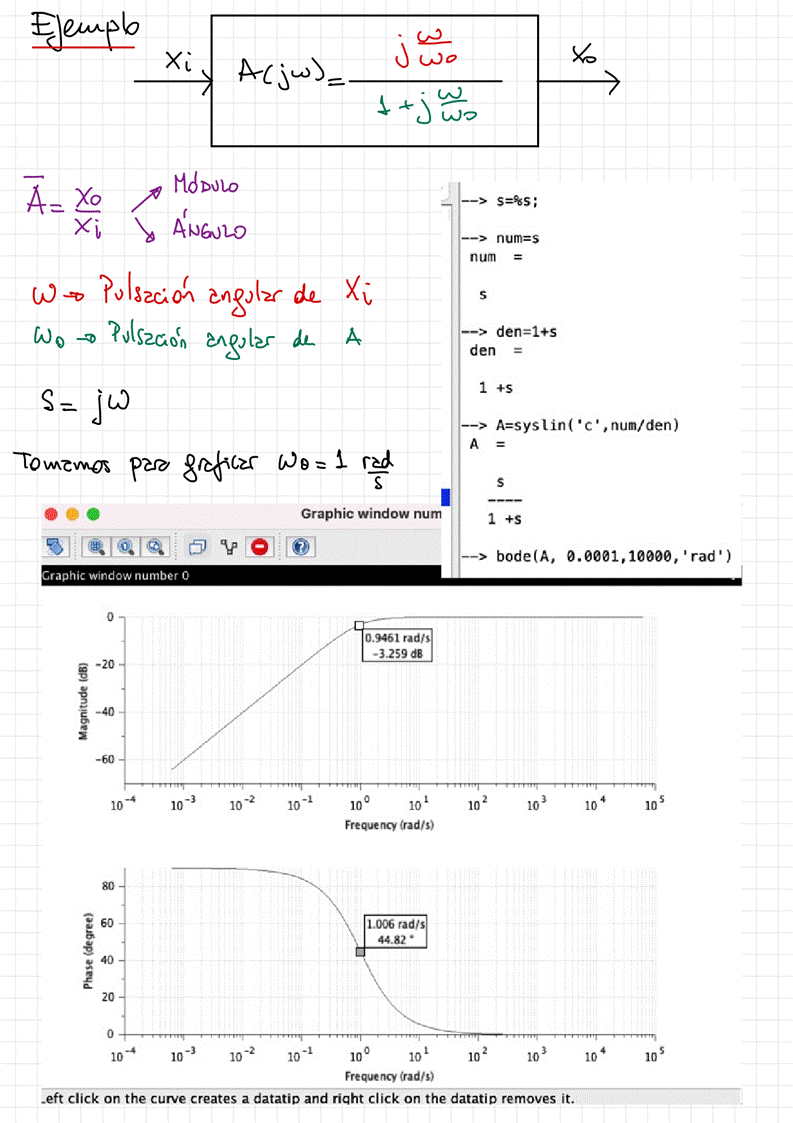 Ejemplo
Xi
A(jω) = (j ω/ω0) / (1 + j ω/ω0)
Xo
Ā = Xo/Xi
MÓDULO
ÁNGULO
ω → Pulsación angular de Xi
ω0 → Pulsación angular de A
S = jω
Tomamos para graficar ω0 = 1 rad/s
--> s=%s;
--> num=s
num =
s
--> den=1+s
den =
1 +s
--> A=syslin('c',num/den)
A =
s
----
1 +s
--> bode(A, 0.0001,10000,'rad')
Graphic window num
Graphic window number 0
Magnitude (dB)
0
-20
-40
-60
0.9461 rad/s
-3.259 dB
10^-4 10^-3 10^-2 10^-1 10^0 10^1 10^2 10^3 10^4 10^5
Frequency (rad/s)
Phase (degree)
80
60
40
20
0
1.006 rad/s
44.82 °
10^-4 10^-3 10^-2 10^-1 10^0 10^1 10^2 10^3 10^4 10^5
Frequency (rad/s)
Left click on the curve creates a datatip and right click on the datatip removes it.